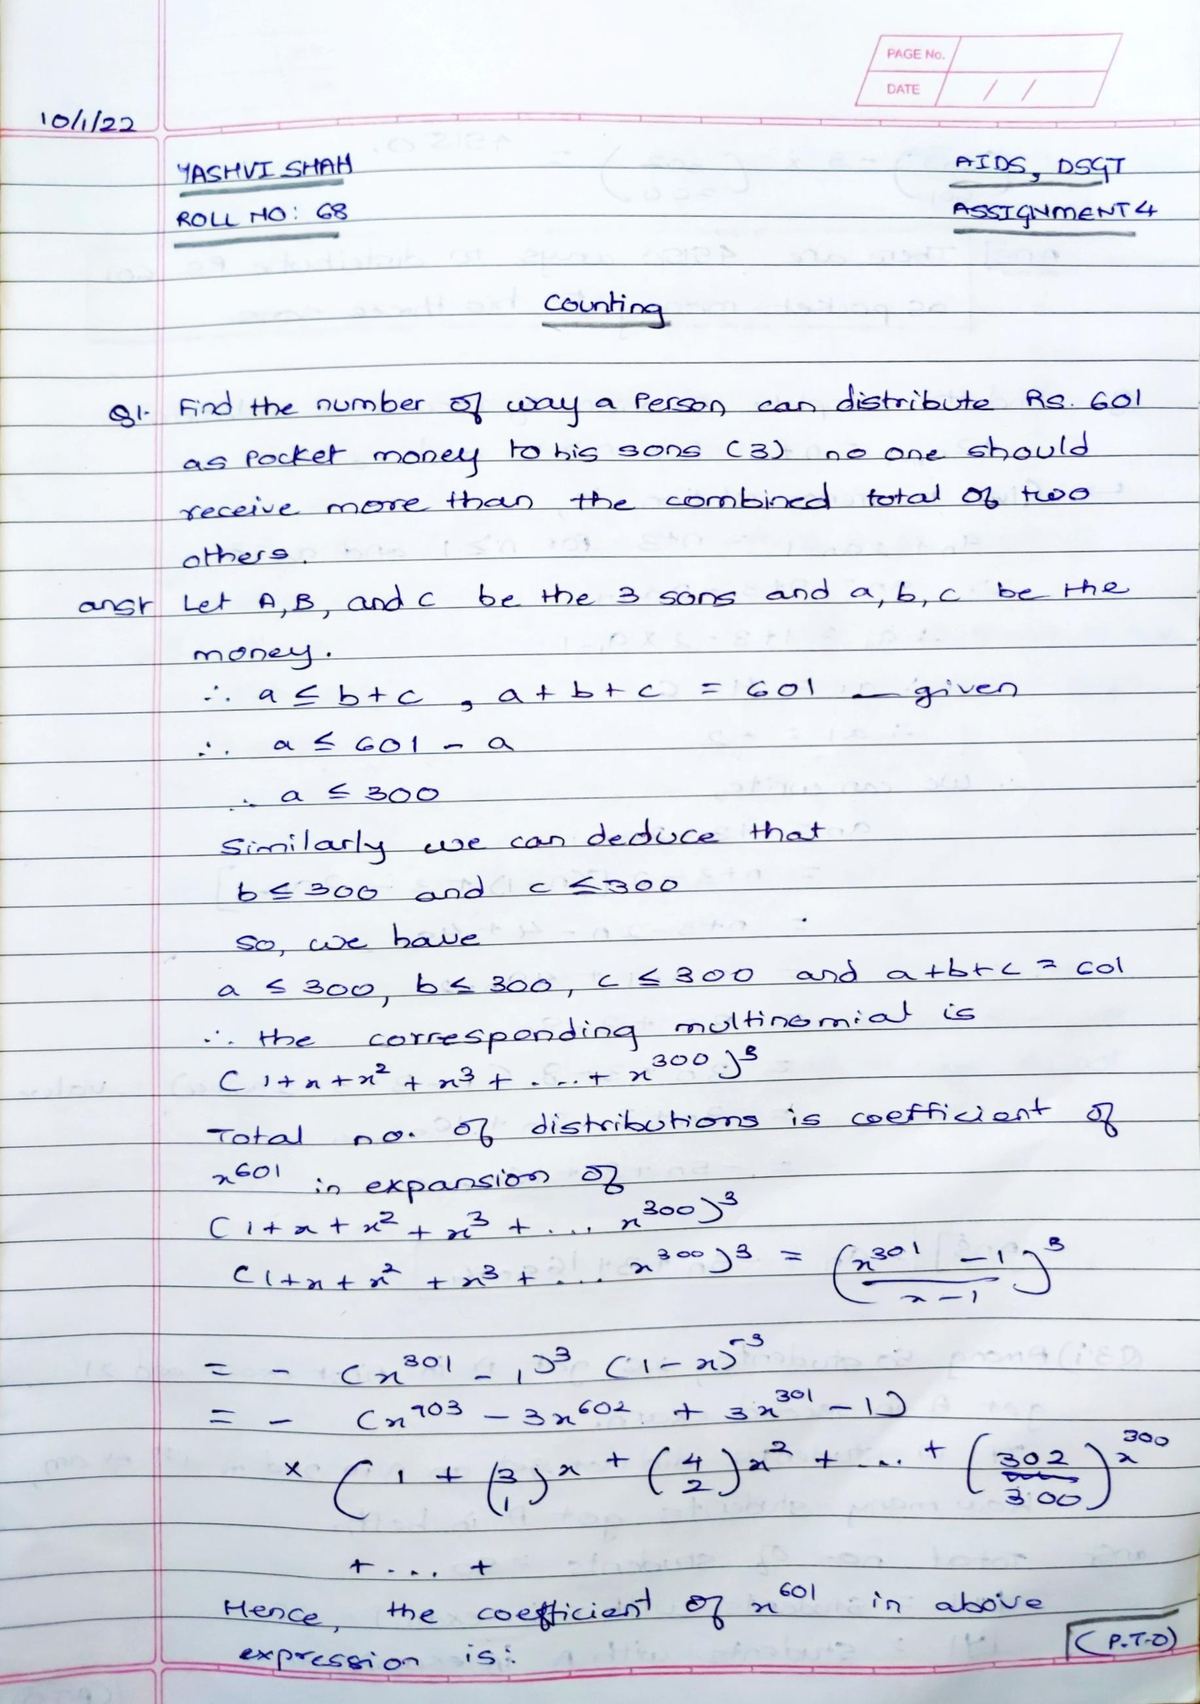 PAGE No.
DATE / /
10/1/22
YASHVI SHAH AIDS, DSGT
ROLL NO: 68 ASSIGNMENT 4
Counting
Q1. Find the number of way a Person can distribute Rs. 601
as Pocket money to his sons (3) no one should
receive more than the combined total of two
others.
ans1 Let A, B, and C be the 3 sons and a, b, c be the
money.
∴ a ≤ b + c , a + b + c = 601 — given
∴ a ≤ 601 - a
∴ a ≤ 300
Similarly we can deduce that
b ≤ 300 and c ≤ 300
So, we have
a ≤ 300, b ≤ 300, c ≤ 300 and a+b+c = 601
∴ the corresponding multinomial is
(1 + x + x² + x³ + .... + x³⁰⁰)³
Total no. of distributions is coefficient of
x⁶⁰¹ in expansion of
(1 + x + x² + x³ + ... x³⁰⁰)³
(1 + x + x² + x³ + ... x³⁰⁰)³ = ((x³⁰¹ - 1)/(x - 1))³
= - (x³⁰¹ - 1)³ (1 - x)⁻³
= - (x⁹⁰³ - 3x⁶⁰² + 3x³⁰¹ - 1)
× (1 + (3 1)x + (4 2)x² + .... + (302 300)x³⁰⁰
+ .... +
Hence, the coefficient of x⁶⁰¹ in above
expression is:
(P.T.O)